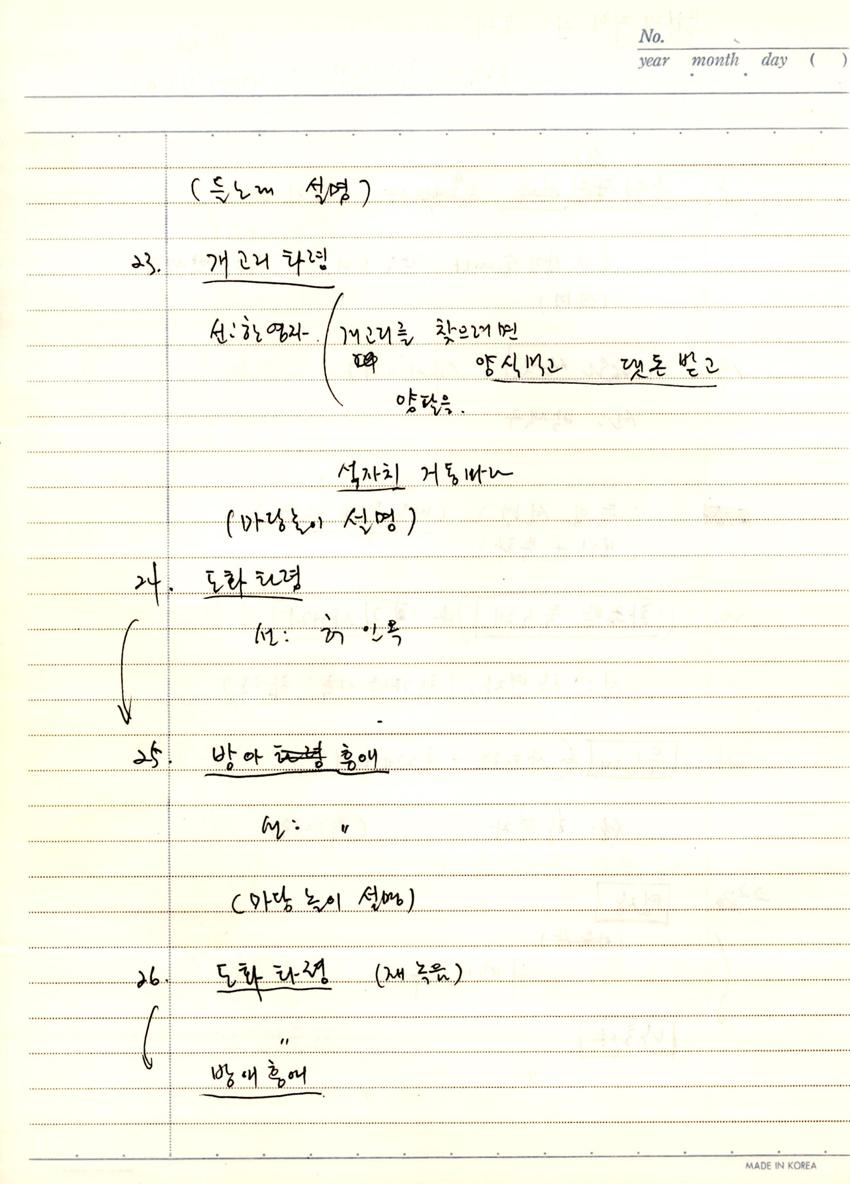 No.
year month day ( )
(들노래 설명)
23. 개고리 타령
선: 한영자. 개고리를 찾으려면
양식먹고 댓돈 받고
양달음.
석자치 거동바나
(마당놀이 설명)
24. 도화 타령
선: 허 안옥
25. 방아 타령 흥애
선: "
(마당 놀이 설명)
26. 도화 타령 (재 녹음)
"
방애 흥애
MADE IN KOREA